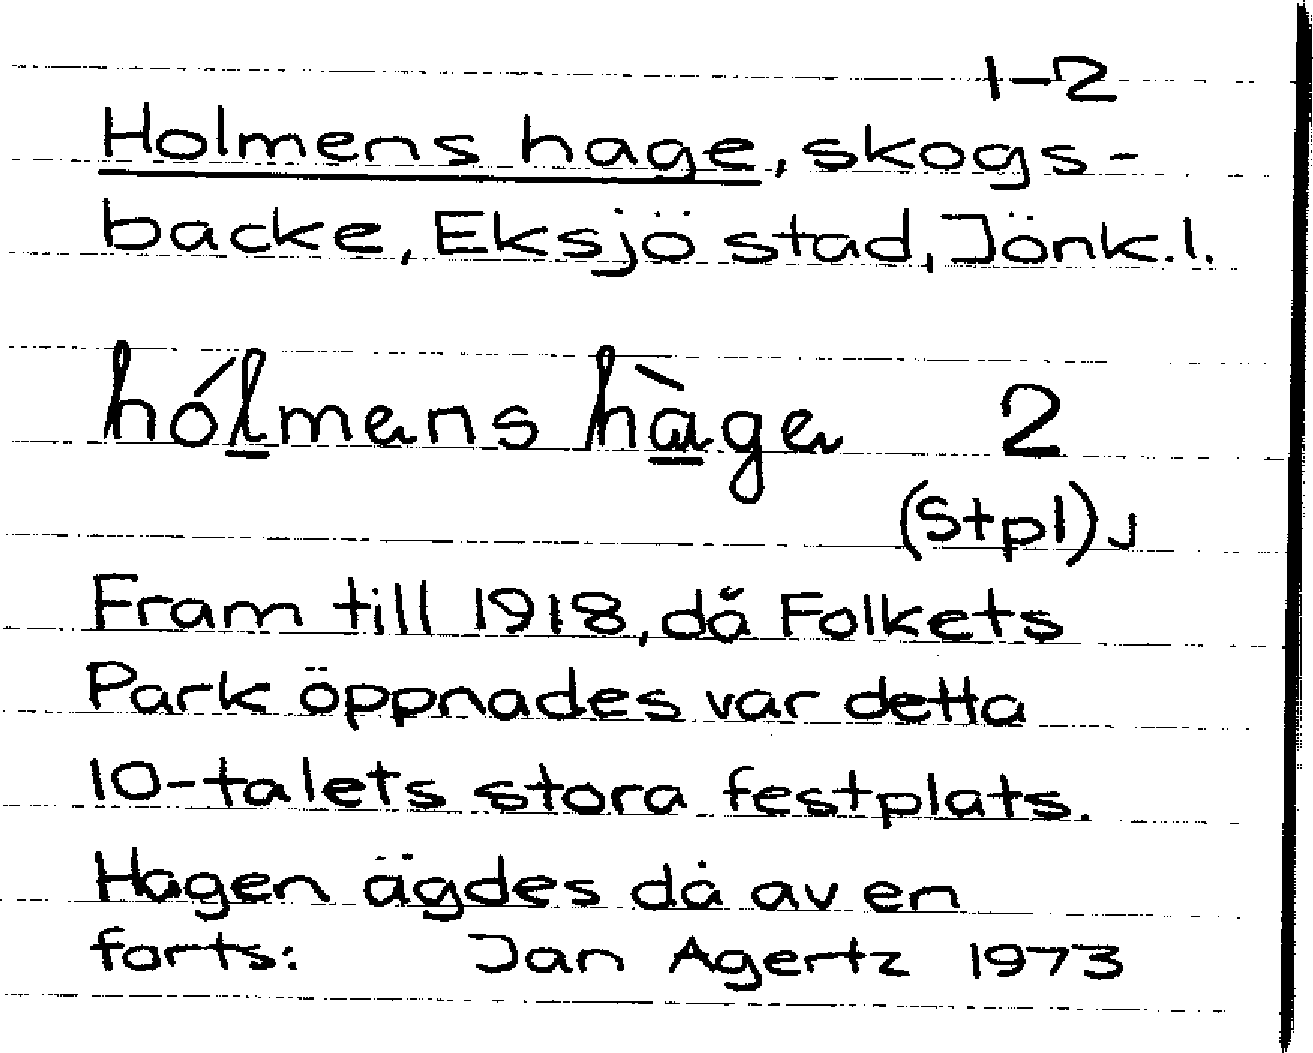 1-2
Holmens hage, skogs-
backe, Eksjö stad, Jönk.l.
hólmens hàgen 2
(Stpl) J
Fram till 1918, då Folkets
Park öppnades var detta
10-talets stora festplats.
Hagen ägdes då av en
forts: Jan Agertz 1973